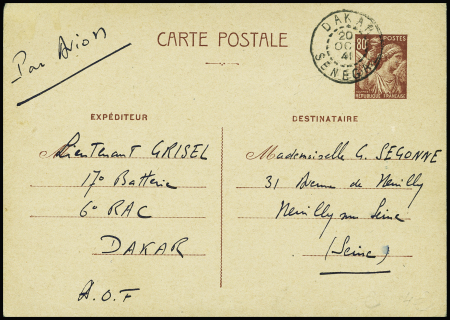 Par Avion
CARTE POSTALE
DAKAR
20
OC
41
SENEGAL
80c
POSTES
REPUBLIQUE FRANÇAISE
EXPÉDITEUR
Lieutenant GRISEL
17e Batterie
6e RAC
DAKAR
A.O.F
DESTINATAIRE
Mademoiselle G. SEGONNE
31 Avenue de Neuilly
Neuilly sur Seine
(Seine)